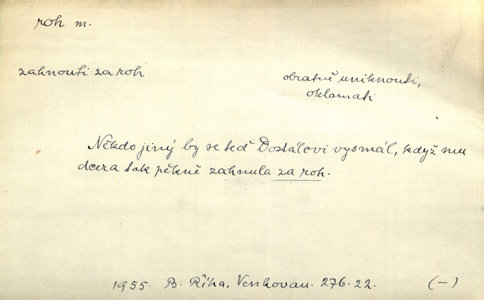 roh m.
zahnouti za roh
obratně uniknouti,
oklamati
Někdo jiný by se teď Dostálovi vysmál, když mu
dcera tak pěkně zahnula za roh.
1955. B. Říha, Venkovan. 276. 22. (-)